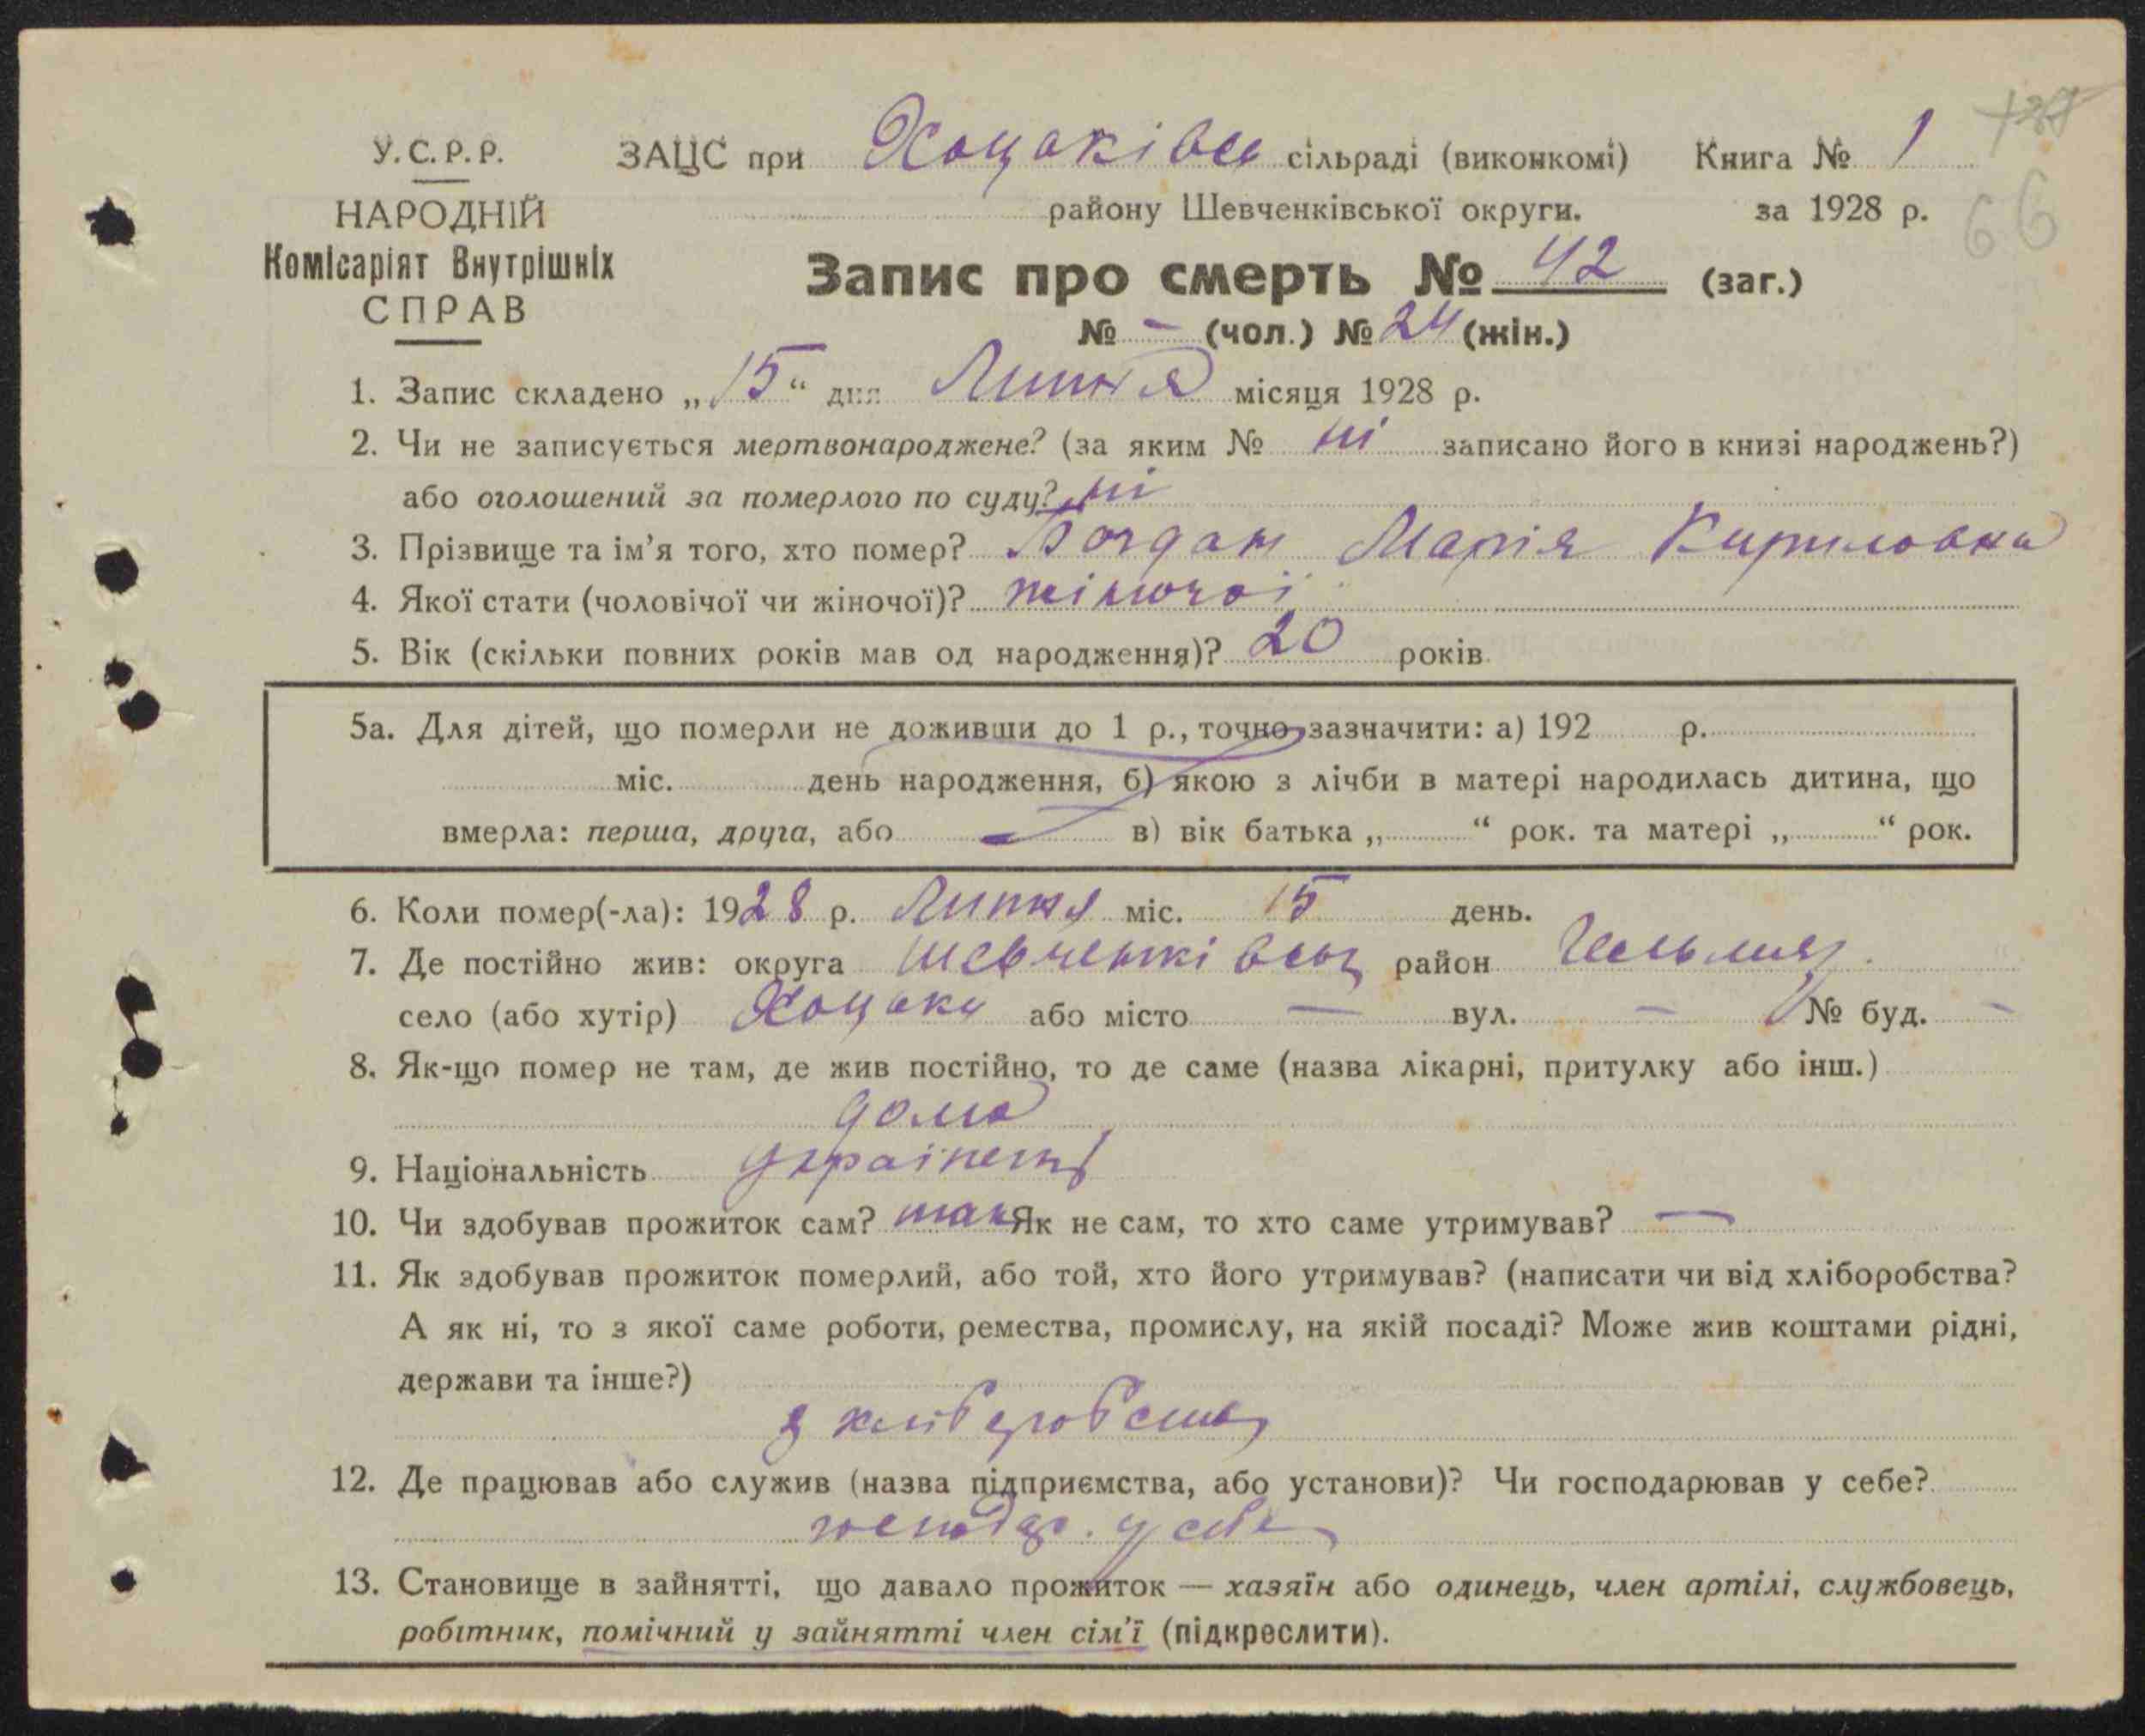 У.С.Р.Р.
НАРОДНІЙ
Комісаріят Внутрішніх
СПРАВ
ЗАЦС при Хоцьківск сільраді (виконкомі) Книга № 1
району Шевченківської округи. за 1928 р.
66
Запис про смерть № 42 (заг.)
№ - (чол.) № 24 (жін.)
1. Запис складено „15“ дня Липня місяця 1928 р.
2. Чи не записується мертвонароджене? (за яким № ні записано його в книзі народжень?)
або оголошений за померлого по суду? ні
3. Прізвище та ім’я того, хто помер? Богдан Марія Кириловна
4. Якої стати (чоловічої чи жіночої)? жіночої
5. Вік (скільки повних років мав од народження)? 20 років
5а. Для дітей, що померли не доживши до 1 р., точно зазначити: а) 192 р.
міс. день народження, б) якою з лічби в матері народилась дитина, що
вмерла: перша, друга, або - в) вік батька „ “ рок. та матері „ “ рок.
6. Коли помер(-ла): 1928 р. Липня міс. 15 день.
7. Де постійно жив: округа Шевченківськ район
село (або хутір) Хоцьки або місто — вул. — № буд. -
8. Як-що помер не там, де жив постійно, то де саме (назва лікарні, притулку або інш.)
дома
9. Національність
10. Чи здобував прожиток сам? так Як не сам, то хто саме утримував? —
11. Як здобував прожиток померлий, або той, хто його утримував? (написати чи від хліборобства?
А як ні, то з якої саме роботи, ремества, промислу, на якій посаді? Може жив коштами рідні,
держави та інше?)
з хліборобства
12. Де працював або служив (назва підприємства, або установи)? Чи господарював у себе?
господар. у себе
13. Становище в зайнятті, що давало прожиток — хазяїн або одинець, член артілі, службовець,
робітник, помічний у зайнятті член сім’ї (підкреслити).